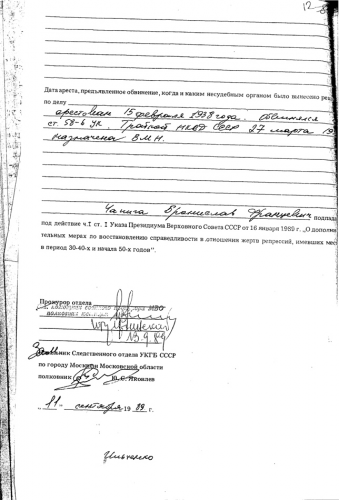 12
Дата ареста, предъявленное обвинение, когда и каким несудебным органом было вынесено реш
по делу арестован 15 февраля 1938 года. Обвинялся
ст. 58-6 УК. Тройкой НКВД СССР 27 марта 19
назначена ВМН.
Бронислав Францевич подпада
под действие ч.I ст. I Указа Президиума Верховного Совета СССР от 16 января 1989 г. „О дополни
тельных мерах по восстановлению справедливости в отношении жертв репрессий, имевших мес
в период 30-40-х и начала 50-х годов".
Прокурор отдела
МВО
13.9.89
Зам Начальник Следственного отдела УКГБ СССР
по городу Москве и Московской области
полковник Ю.С. Яковлев
„11" сентября 1989 г.